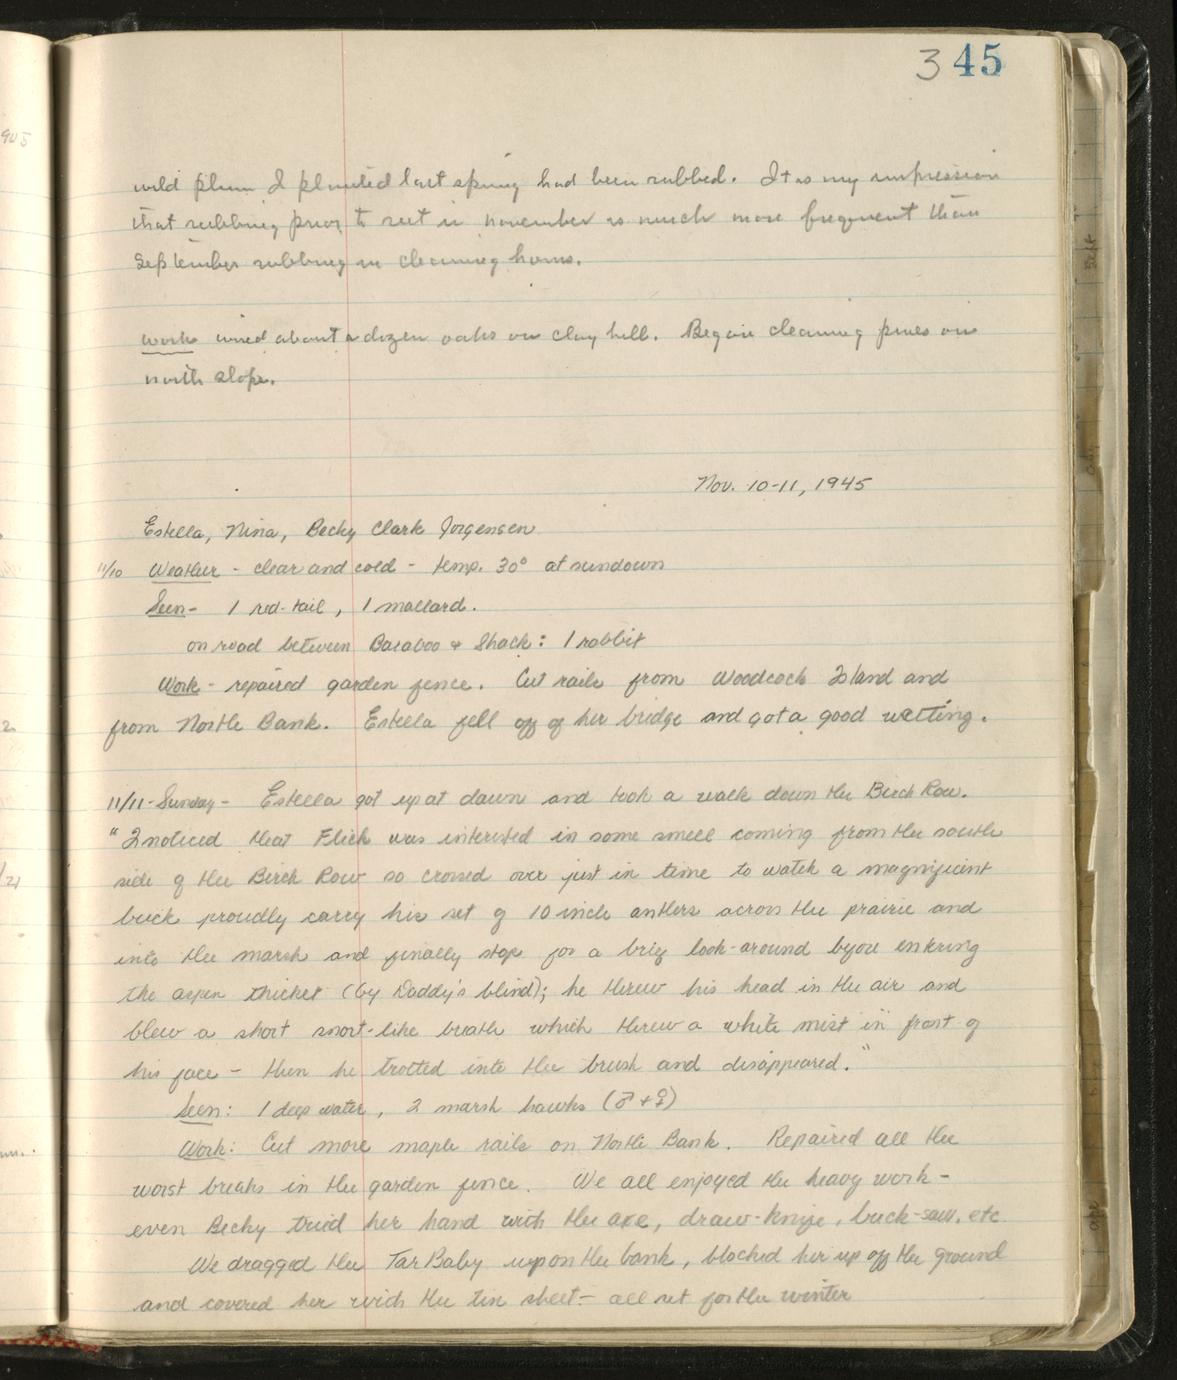 345
wild plum I planted last spring had been rubbed. It is my impression
that rubbing prior to rut in november is much more frequent than
September rubbing in cleaning horns.
work wired about a dozen oaks on clay hill. Began cleaning pines on
north slope.
Nov. 10-11, 1945
Estella, Nina, Becky Clark Jorgensen
11/10 Weather - clear and cold - temp. 30° at sundown
Seen - 1 red-tail, 1 mallard.
on road between Baraboo & Shack: 1 rabbit
Work - repaired garden fence. Cut rails from Woodcock Island and
from North Bank. Estella fell off of her bridge and got a good wetting.
11/11 - Sunday - Estella got up at dawn and took a walk down the Birch Row.
"I noticed that Flick was interested in some smell coming from the south
side of the Birch Row so crossed over just in time to watch a magnificent
buck proudly carry his set of 10 inch antlers across the prairie and
into the marsh and finally stop for a brief look-around before entering
the aspen thicket (by Daddy's blind); he threw his head in the air and
blew a short snort-like breath which threw a white mist in front of
his face - then he trotted into the brush and disappeared."
Seen: 1 deep water, 2 marsh hawks (♂ + ♀)
Work: Cut more maple rails on North Bank. Repaired all the
worst breaks in the garden fence. We all enjoyed the heavy work -
even Becky tried her hand with the axe, draw-knife, buck-saw, etc
We dragged the Tar Baby up on the bank, blocked her up off the ground
and covered her with the tin sheet - all set for the winter